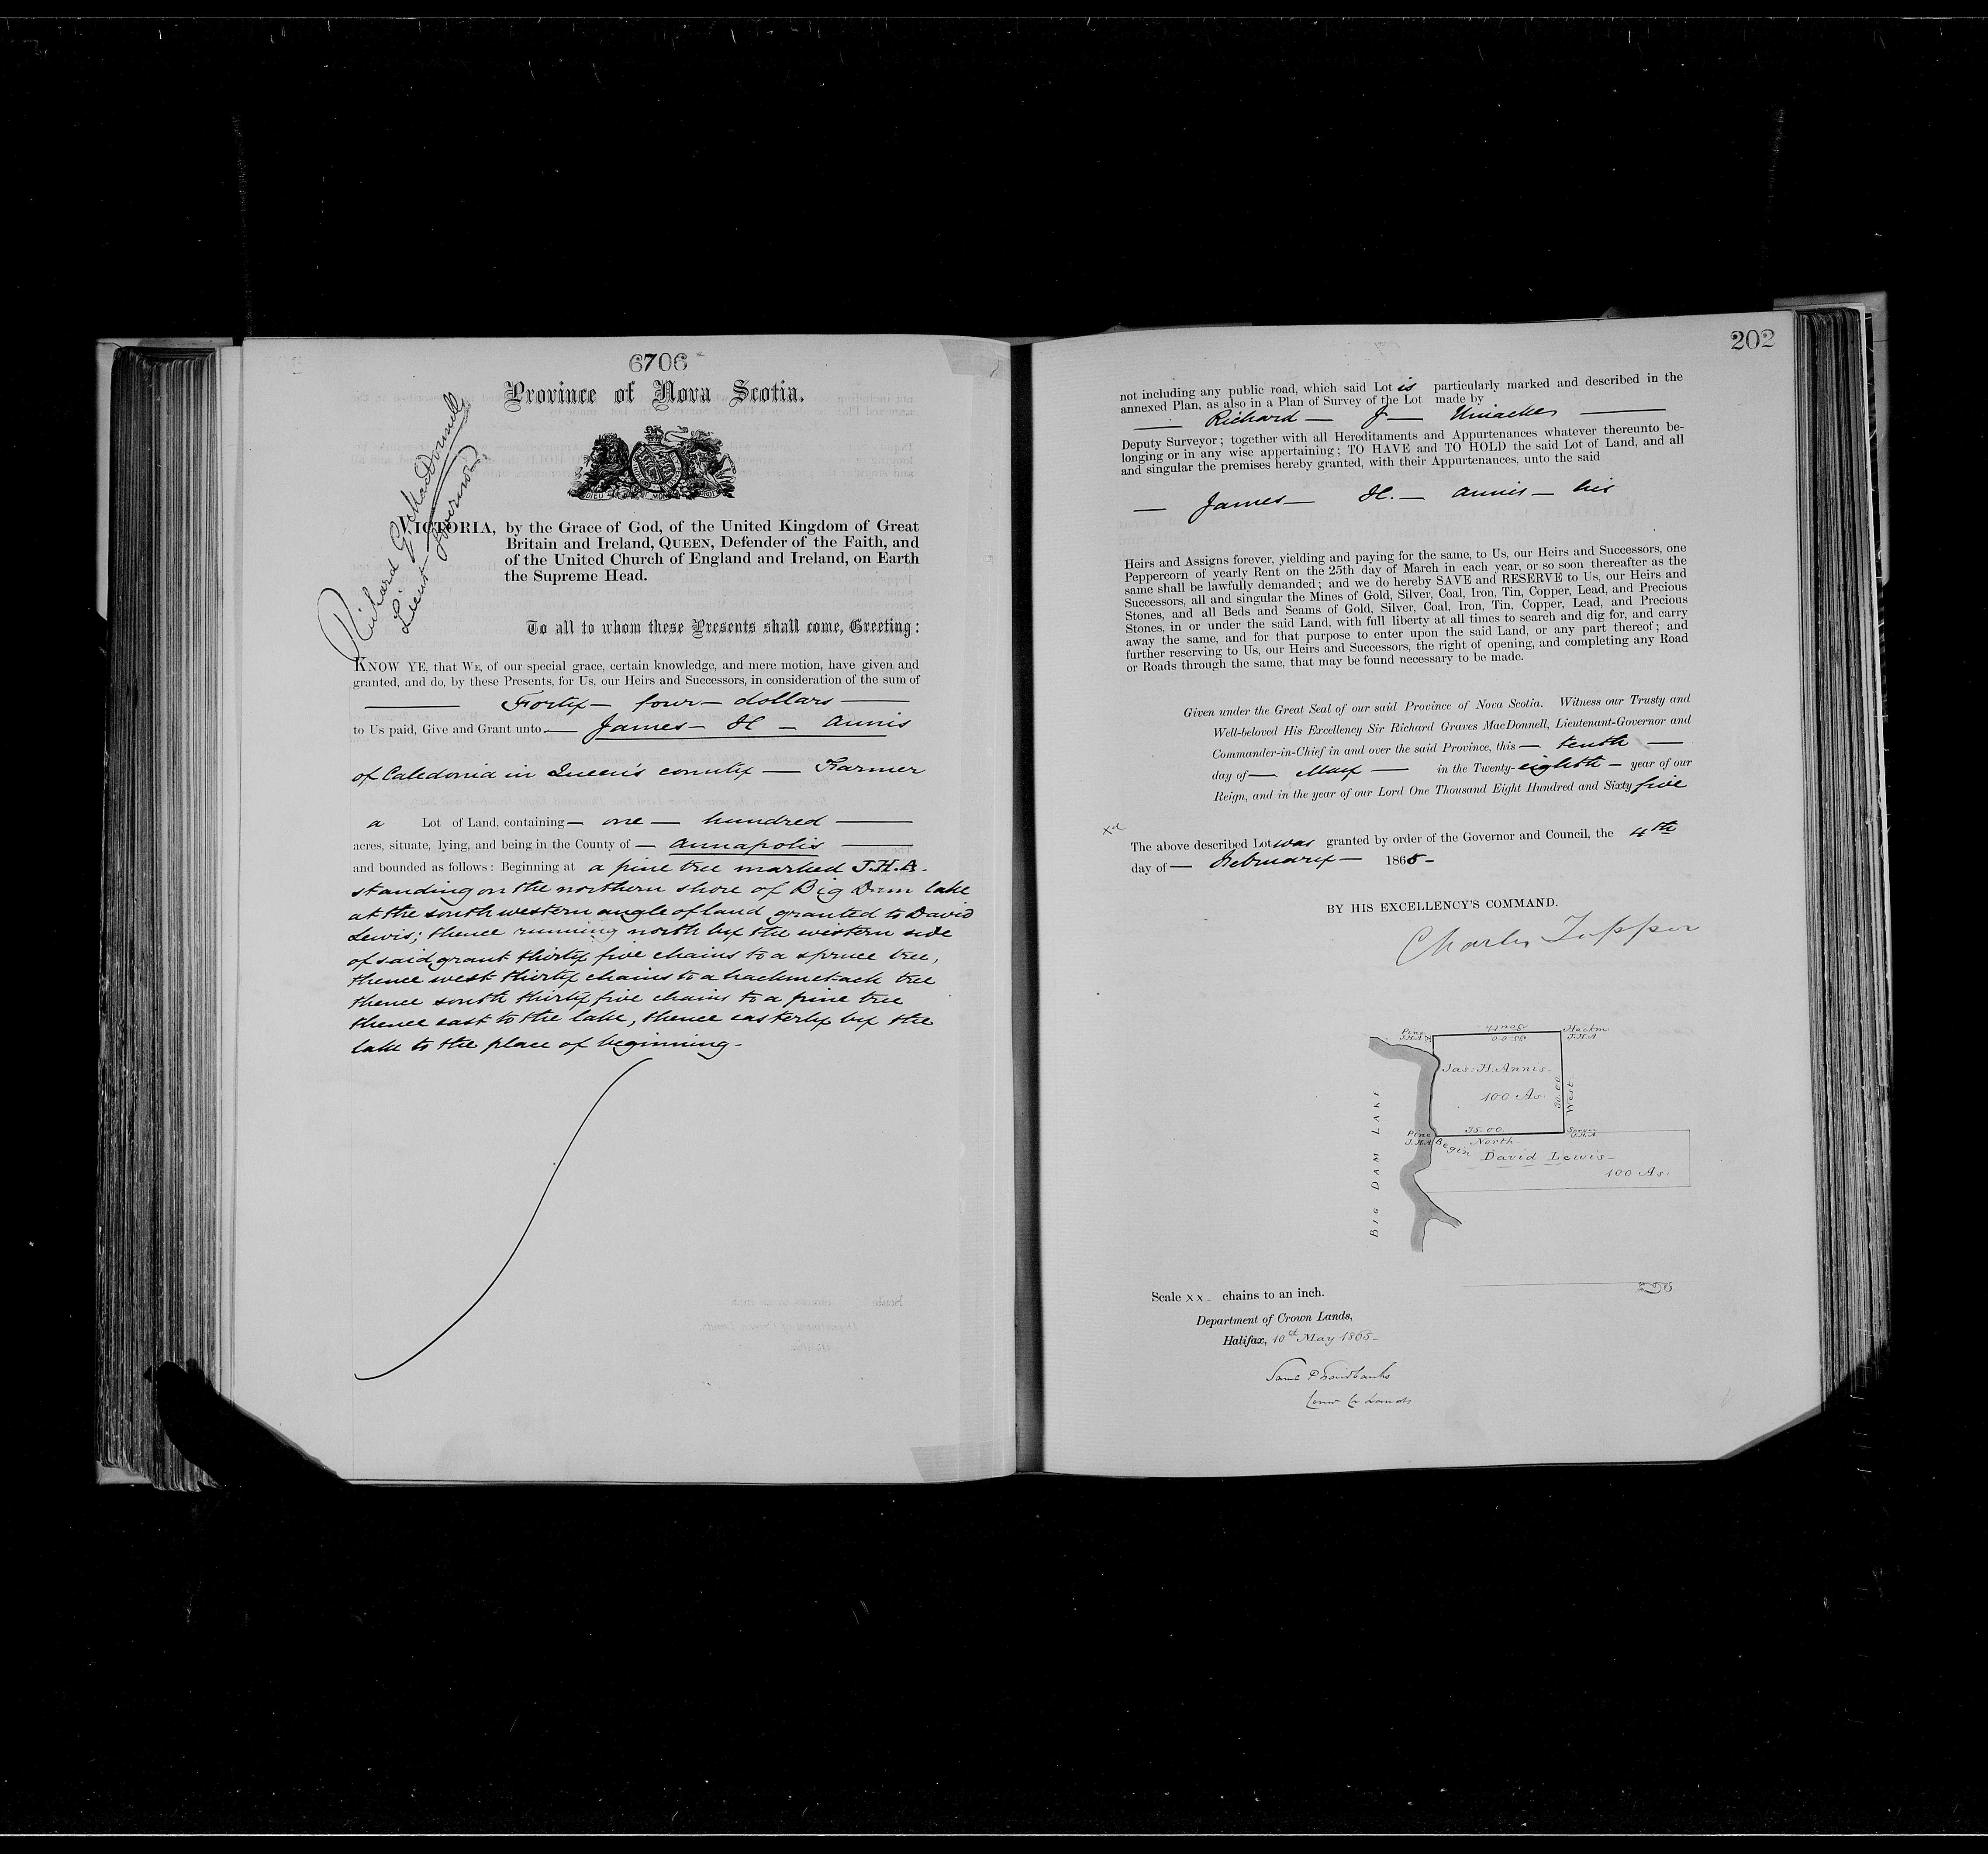 6706
Province of Nova Scotia.
Richard G. MacDonnell
Lieut Governor
VICTORIA, by the Grace of God, of the United Kingdom of Great
Britain and Ireland, QUEEN, Defender of the Faith, and
of the United Church of England and Ireland, on Earth
the Supreme Head.
To all to whom these Presents shall come, Greeting:
KNOW YE, that WE, of our special grace, certain knowledge, and mere motion, have given and
granted, and do, by these Presents, for Us, our Heirs and Successors, in consideration of the sum of
Forty - four - dollars
to Us paid, Give and Grant unto James - H - Annis
of Caledonia in Queen's county - Farmer
a Lot of Land, containing - one - hundred
acres, situate, lying, and being in the County of - Annapolis
and bounded as follows: Beginning at a pine tree marked J.H.A.
standing on the northern shore of Big Dam lake
at the south western angle of land granted to David
Lewis; thence running north by the western side
of said grant thirty five chains to a spruce tree,
thence west thirty chains to a hackmetack tree
thence south thirty five chains to a pine tree
thence east to the lake, thence easterly by the
lake to the place of beginning -
202
not including any public road, which said Lot is particularly marked and described in the
annexed Plan, as also in a Plan of Survey of the Lot made by
Richard - J - Uniacke
Deputy Surveyor; together with all Hereditaments and Appurtenances whatever thereunto be-
longing or in any wise appertaining; TO HAVE and TO HOLD the said Lot of Land, and all
and singular the premises hereby granted, with their Appurtenances, unto the said
- James - H. - Annis - his
Heirs and Assigns forever, yielding and paying for the same, to Us, our Heirs and Successors, one
Peppercorn of yearly Rent on the 25th day of March in each year, or so soon thereafter as the
same shall be lawfully demanded; and we do hereby SAVE and RESERVE to Us, our Heirs and
Successors, all and singular the Mines of Gold, Silver, Coal, Iron, Tin, Copper, Lead, and Precious
Stones, and all Beds and Seams of Gold, Silver, Coal, Iron, Tin, Copper, Lead, and Precious
Stones, in or under the said Land, with full liberty at all times to search and dig for, and carry
away the same, and for that purpose to enter upon the said Land, or any part thereof; and
further reserving to Us, our Heirs and Successors, the right of opening, and completing any Road
or Roads through the same, that may be found necessary to be made.
Given under the Great Seal of our said Province of Nova Scotia. Witness our Trusty and
Well-beloved His Excellency Sir Richard Graves MacDonnell, Lieutenant-Governor and
Commander-in-Chief in and over the said Province, this - tenth -
day of - May - in the Twenty-eighth - year of our
Reign, and in the year of our Lord One Thousand Eight Hundred and Sixty five
xd
The above described Lot was granted by order of the Governor and Council, the 4th
day of - February - 1865 -
BY HIS EXCELLENCY'S COMMAND.
Charles Tupper
Pine
J.H.A
South
35.00
Hackm
J.H.A
Jas: H. Annis -
100 As.
30.00
West
Pine
J.H.A
Begin
35.00
North
J.H.A
David Lewis -
100 As:
BIG DAM LAKE
Scale xx chains to an inch.
Department of Crown Lands,
Halifax, 10th May 1865 -
Saml P Fairbanks
Comr Cr Lands